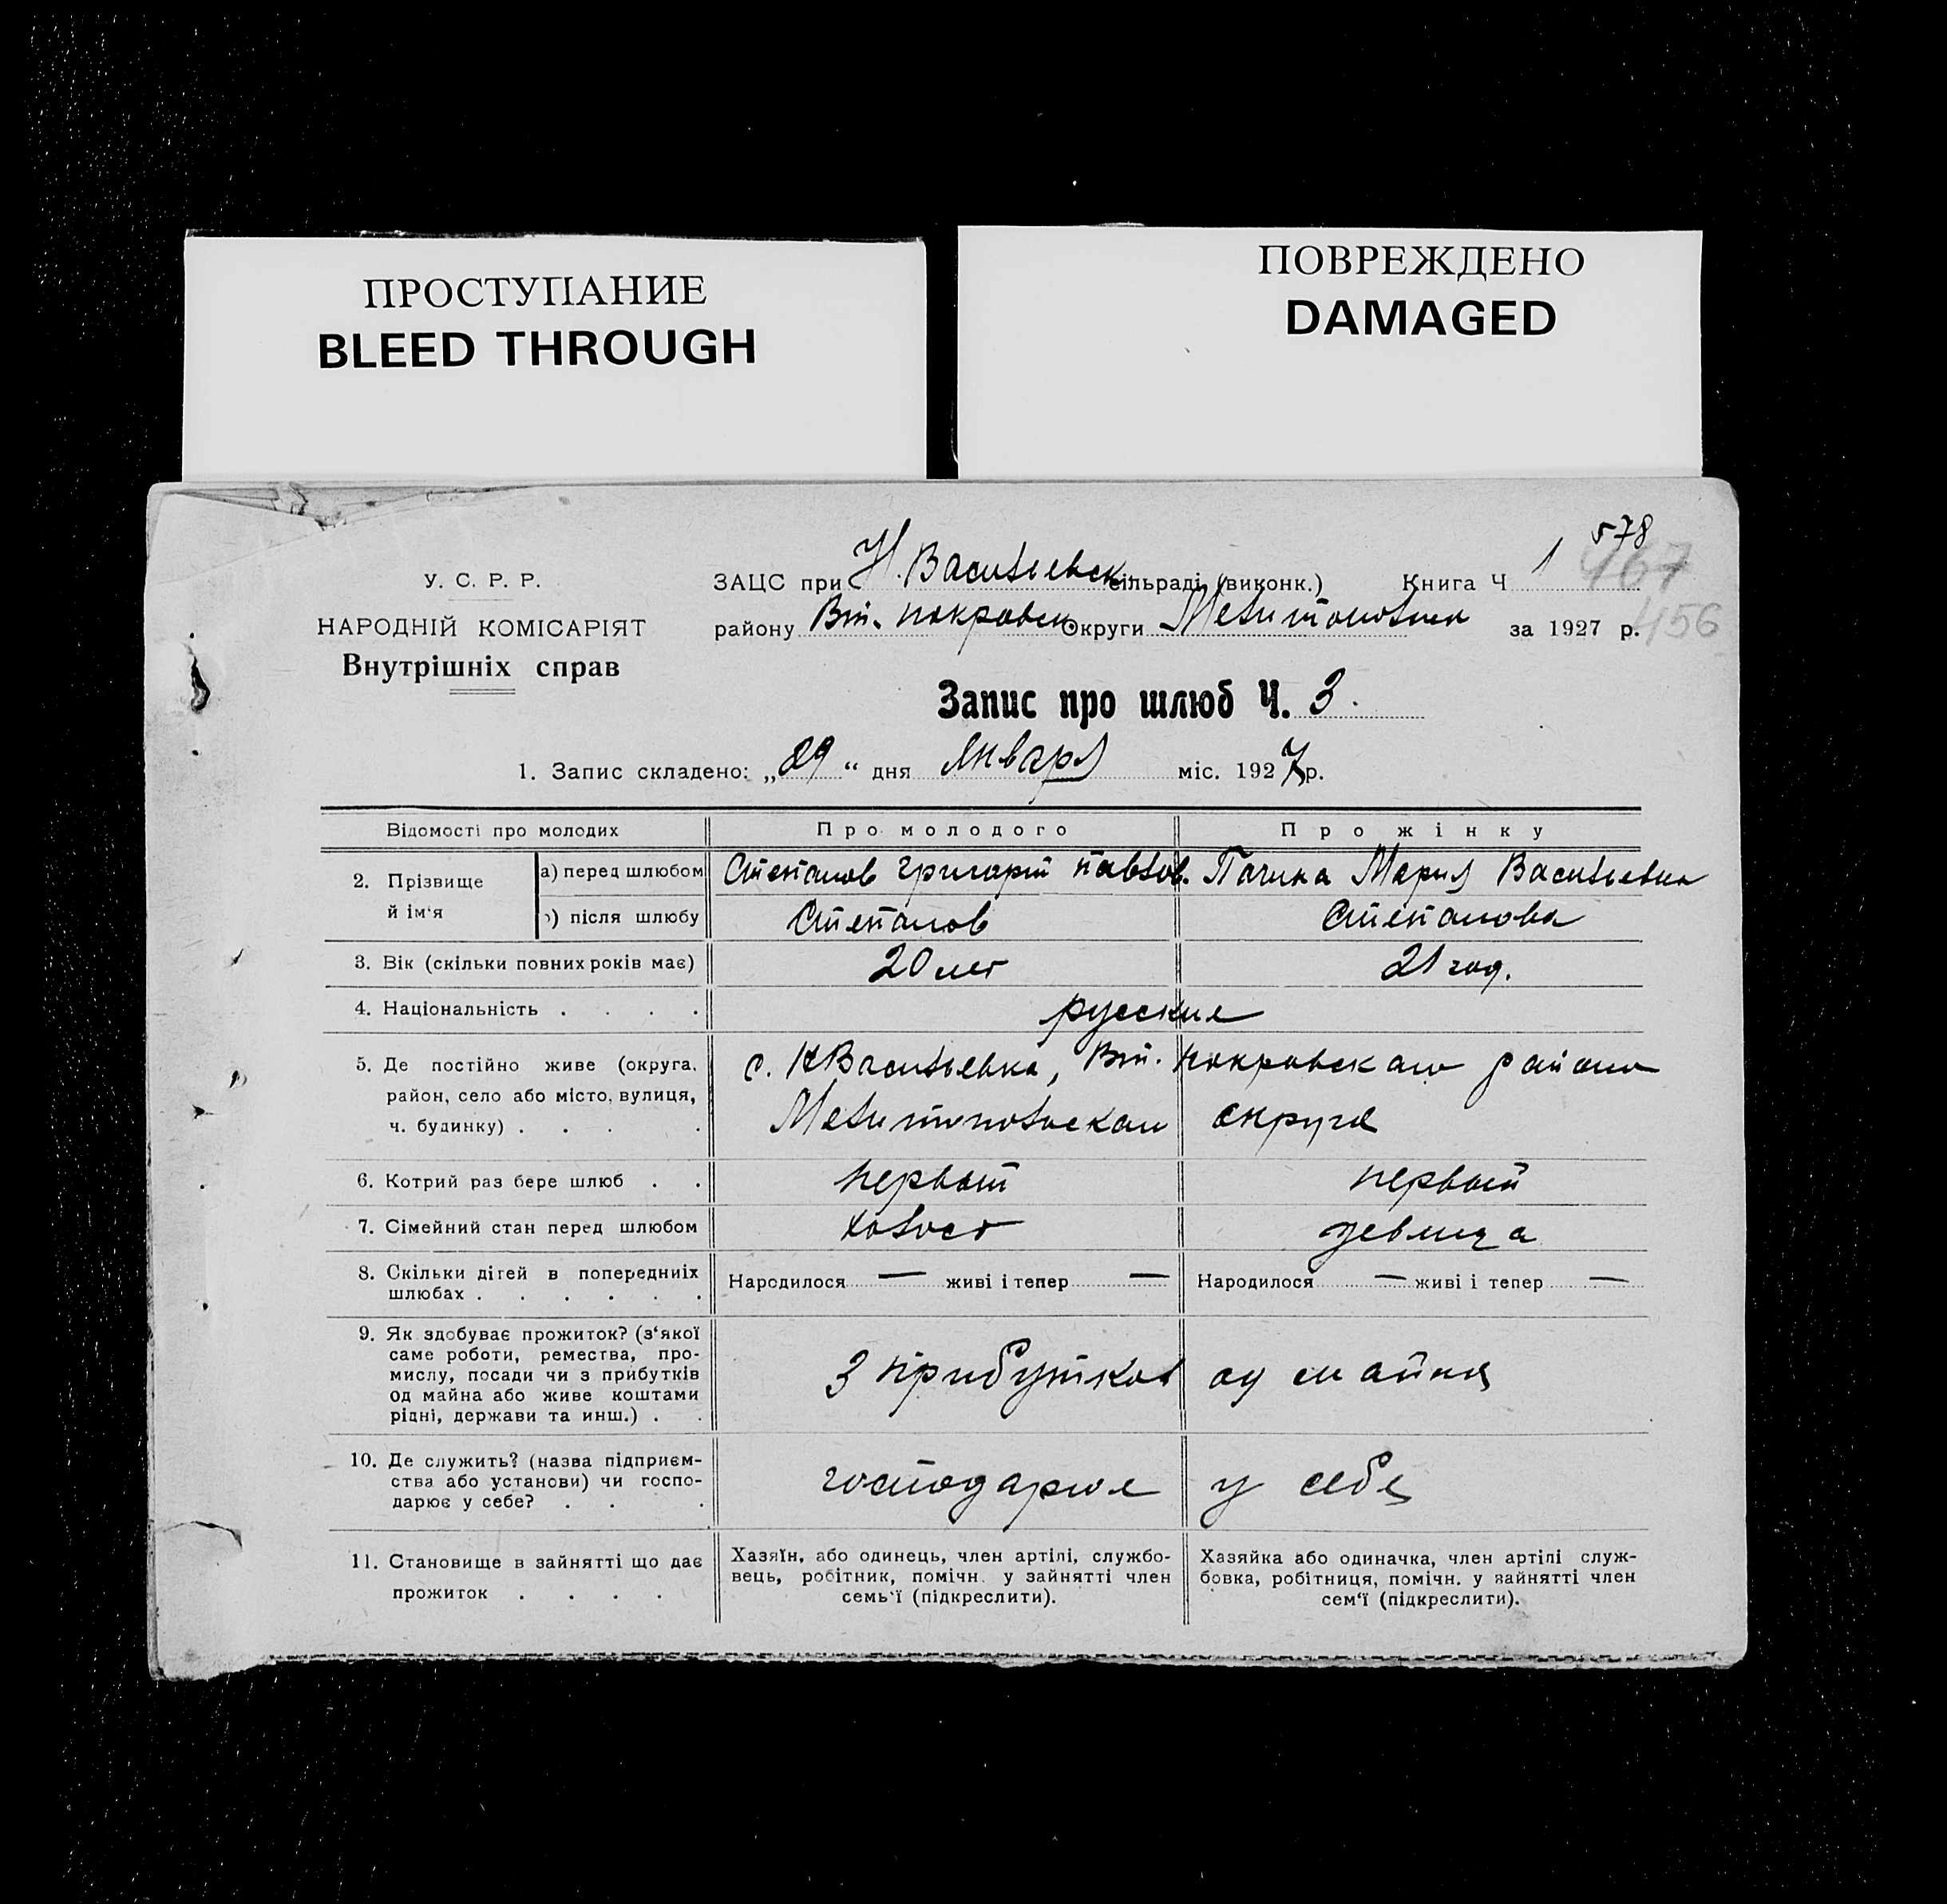 ПРОСТУПАНИЕ
BLEED THROUGH
ПОВРЕЖДЕНО
DAMAGED
578
467
456
У. С. Р. Р.
НАРОДНІЙ КОМІСАРІЯТ
Внутрішніх справ
ЗАЦС при Н. Васильевск. сільраді (виконк.) Книга Ч 1
району Вт. покровск. Округи Мелитопольск за 1927 р.
Запис про шлюб Ч. 3.
1. Запис складено: „29“ дня Января міс. 1927 р.
Відомості про молодих
Про молодого
Про жінку
2. Прізвище й ім‘я
а) перед шлюбом
Степанов Григорий Павлов.
Пачина Мария Васильевна
б) після шлюбу
Степанов
Степанова
3. Вік (скільки повних років має)
20 лет
21 год.
4. Національність . . . .
русские
5. Де постійно живе (округа,
район, село або місто, вулиця,
ч. будинку) . . . .
с. НВасильевка, Вт. покровскаго района
Мелитопольскаи округа
6. Котрий раз бере шлюб . .
первый
первый
7. Сімейний стан перед шлюбом
холост
девица
8. Скільки дітей в попередниіх
шлюбах . . . . . .
Народилося — живі і тепер —
Народилося — живі і тепер —
9. Як здобуває прожиток? (з‘якої
саме роботи, ремества, про-
мислу, посади чи з прибутків
од майна або живе коштами
рідні, держави та инш.) . .
З прибутков од майна
10. Де служить? (назва підприєм-
ства або установи) чи госпо-
дарює у себе? . . .
господарює у себе
11. Становище в зайнятті що дає
прожиток . . . .
Хазяїн, або одинець, член артілі, службо-
вець, робітник, помічн. у зайнятті член
семь‘ї (підкреслити).
Хазяйка або одиначка, член артілі служ-
бовка, робітниця, помічн. у зайнятті член
сем‘ї (підкреслити).